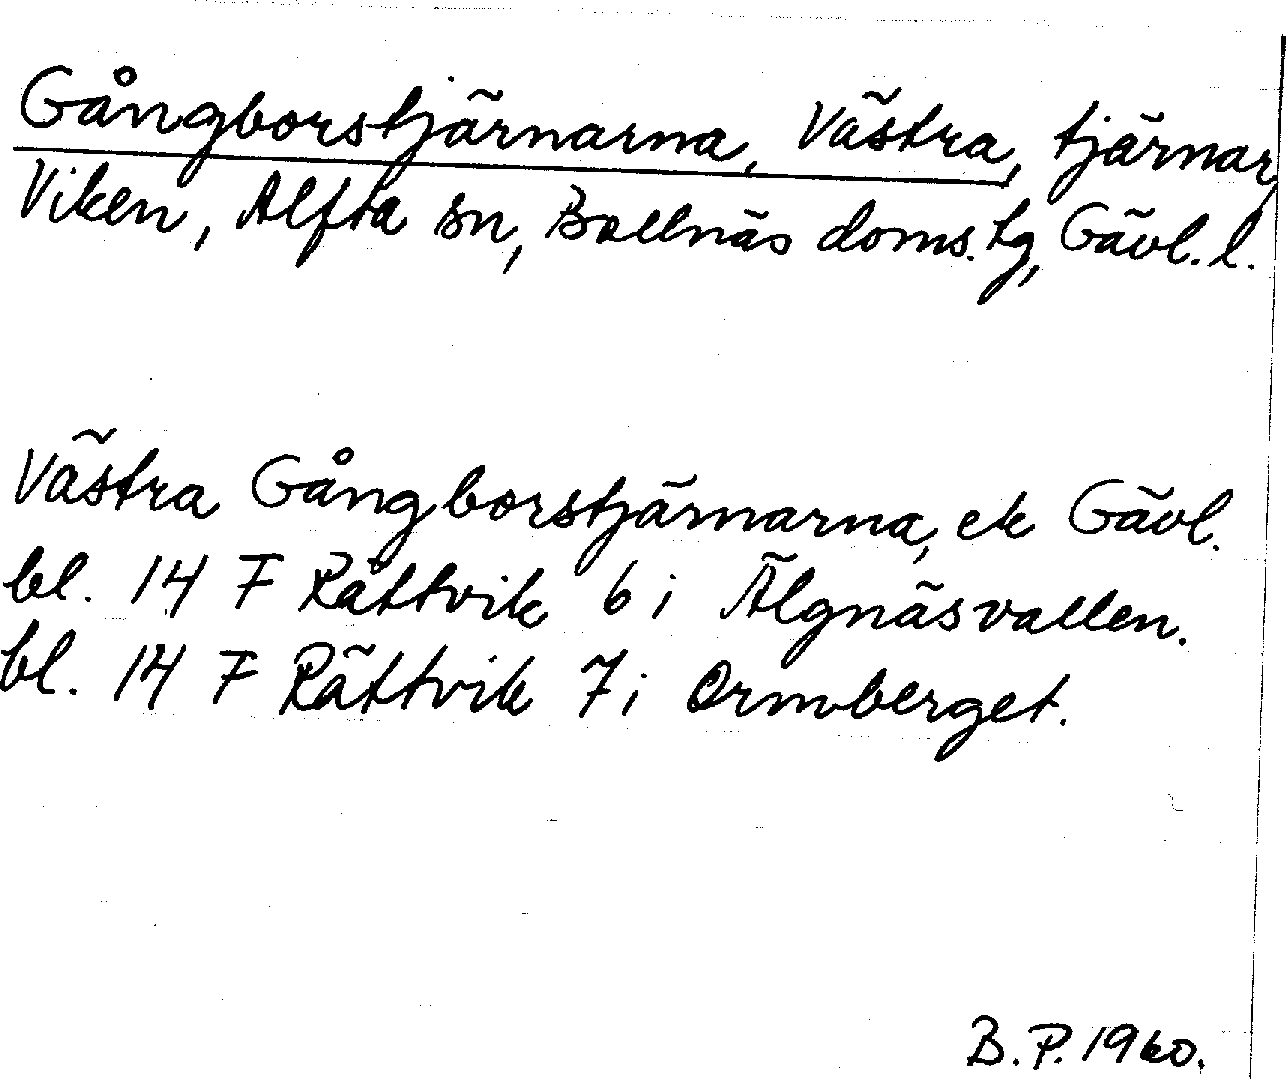 Gångborstjärnarna, Västra, tjärnar,
Viken, Alfta sn, Bollnäs doms. tg, Gävl. l.
Västra Gångborstjärnarna, ek Gävl.
bl. 14 F Rättvik 6 i Älgnäsvallen.
bl. 14 F Rättvik 7 i Ormberget.
B. P. 1960.